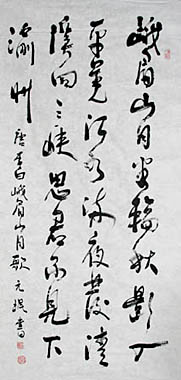 峨眉山月半輪秋影入
平羌江水流夜發清
溪向三峽思君不見下
渝州 唐李白峨眉山月歌 元 書